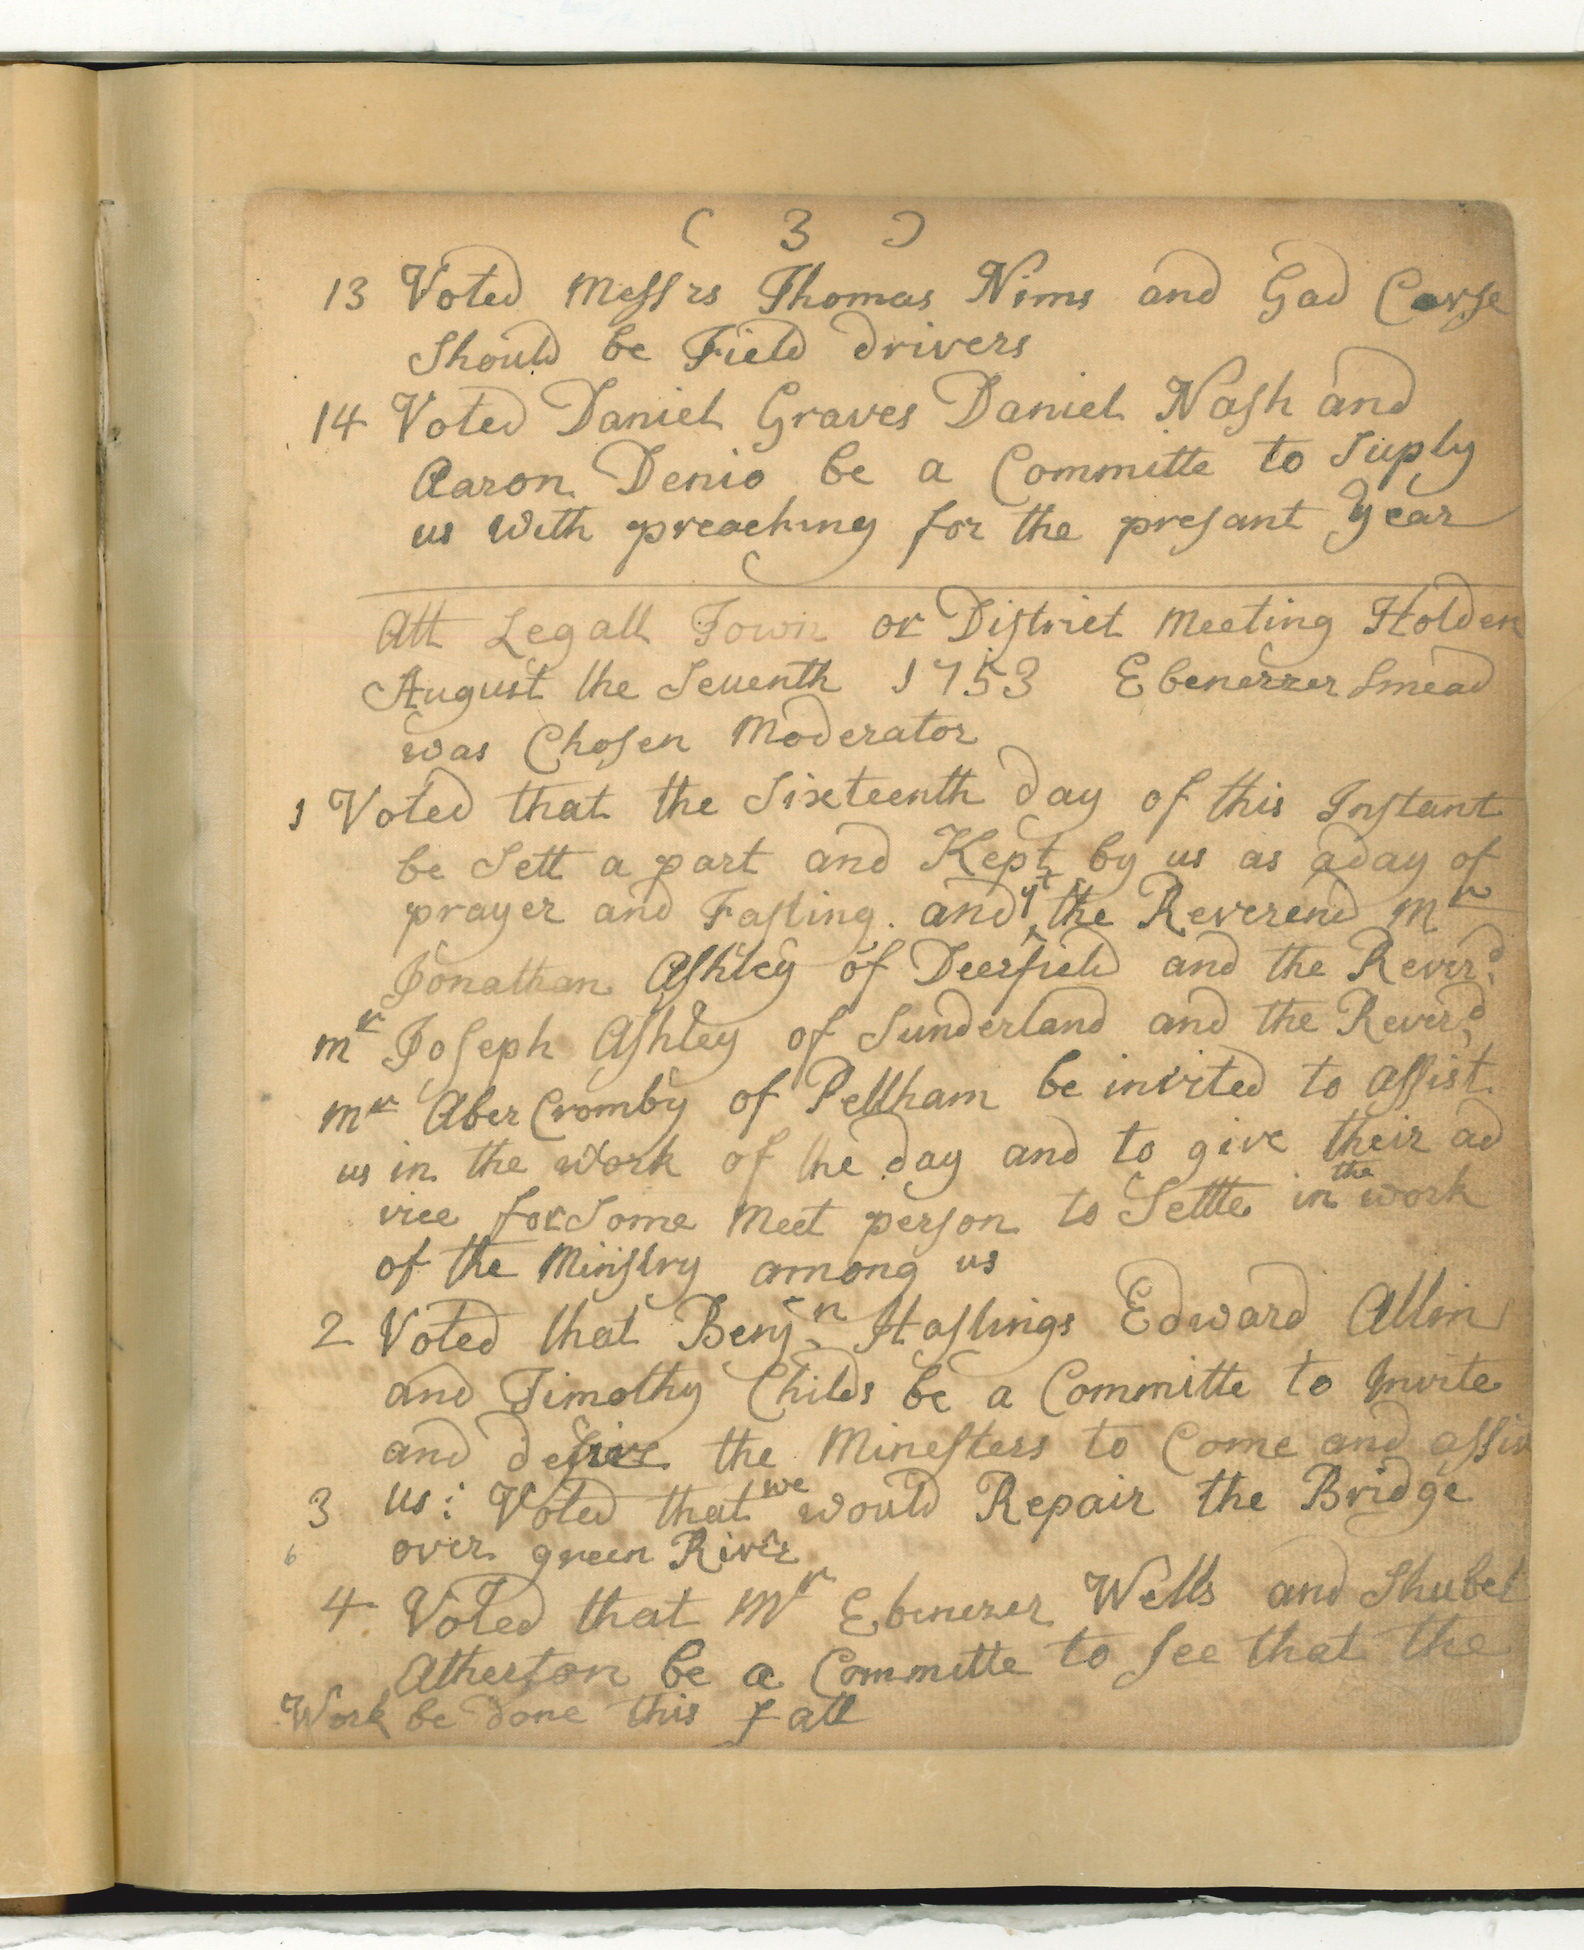 ( 3 )
13 Voted Messrs Thomas Nims and Gad Corse
Should be Field drivers
14 Voted Daniel Graves Daniel Nash and
Aaron Denio be a Committe to Suply
us with preaching for the presant year
Att Legall Town or District Meeting Holden
August the Seuenth 1753 Ebenezzer Smead
was Chosen Moderator
1 Voted that the Sixteenth day of this Instant
be Sett a part and Kept by us as aday of
prayer and Fasting. and yt the Reverend Mr
Jonathan Ashley of Deerfield and the Reverd
Mr Joseph Ashley of Sunderland and the Reverd
Mr AberCromby of Pellham be invited to assist
us in the work of the day and to give their ad
vice for Some Meet person to Settle in the work
of the Ministry among us
2 Voted that Benjn Hastings Edward Allin
and Timothy Childs be a Committe to Invite
and desire the Minesters to Come and assis
3 us: Voted that we would Repair the Bridge
6 over green River
4 Voted that Mr Ebenezer Wells and Shubel
Atherton be a Committe to See that the
Work be done this fall